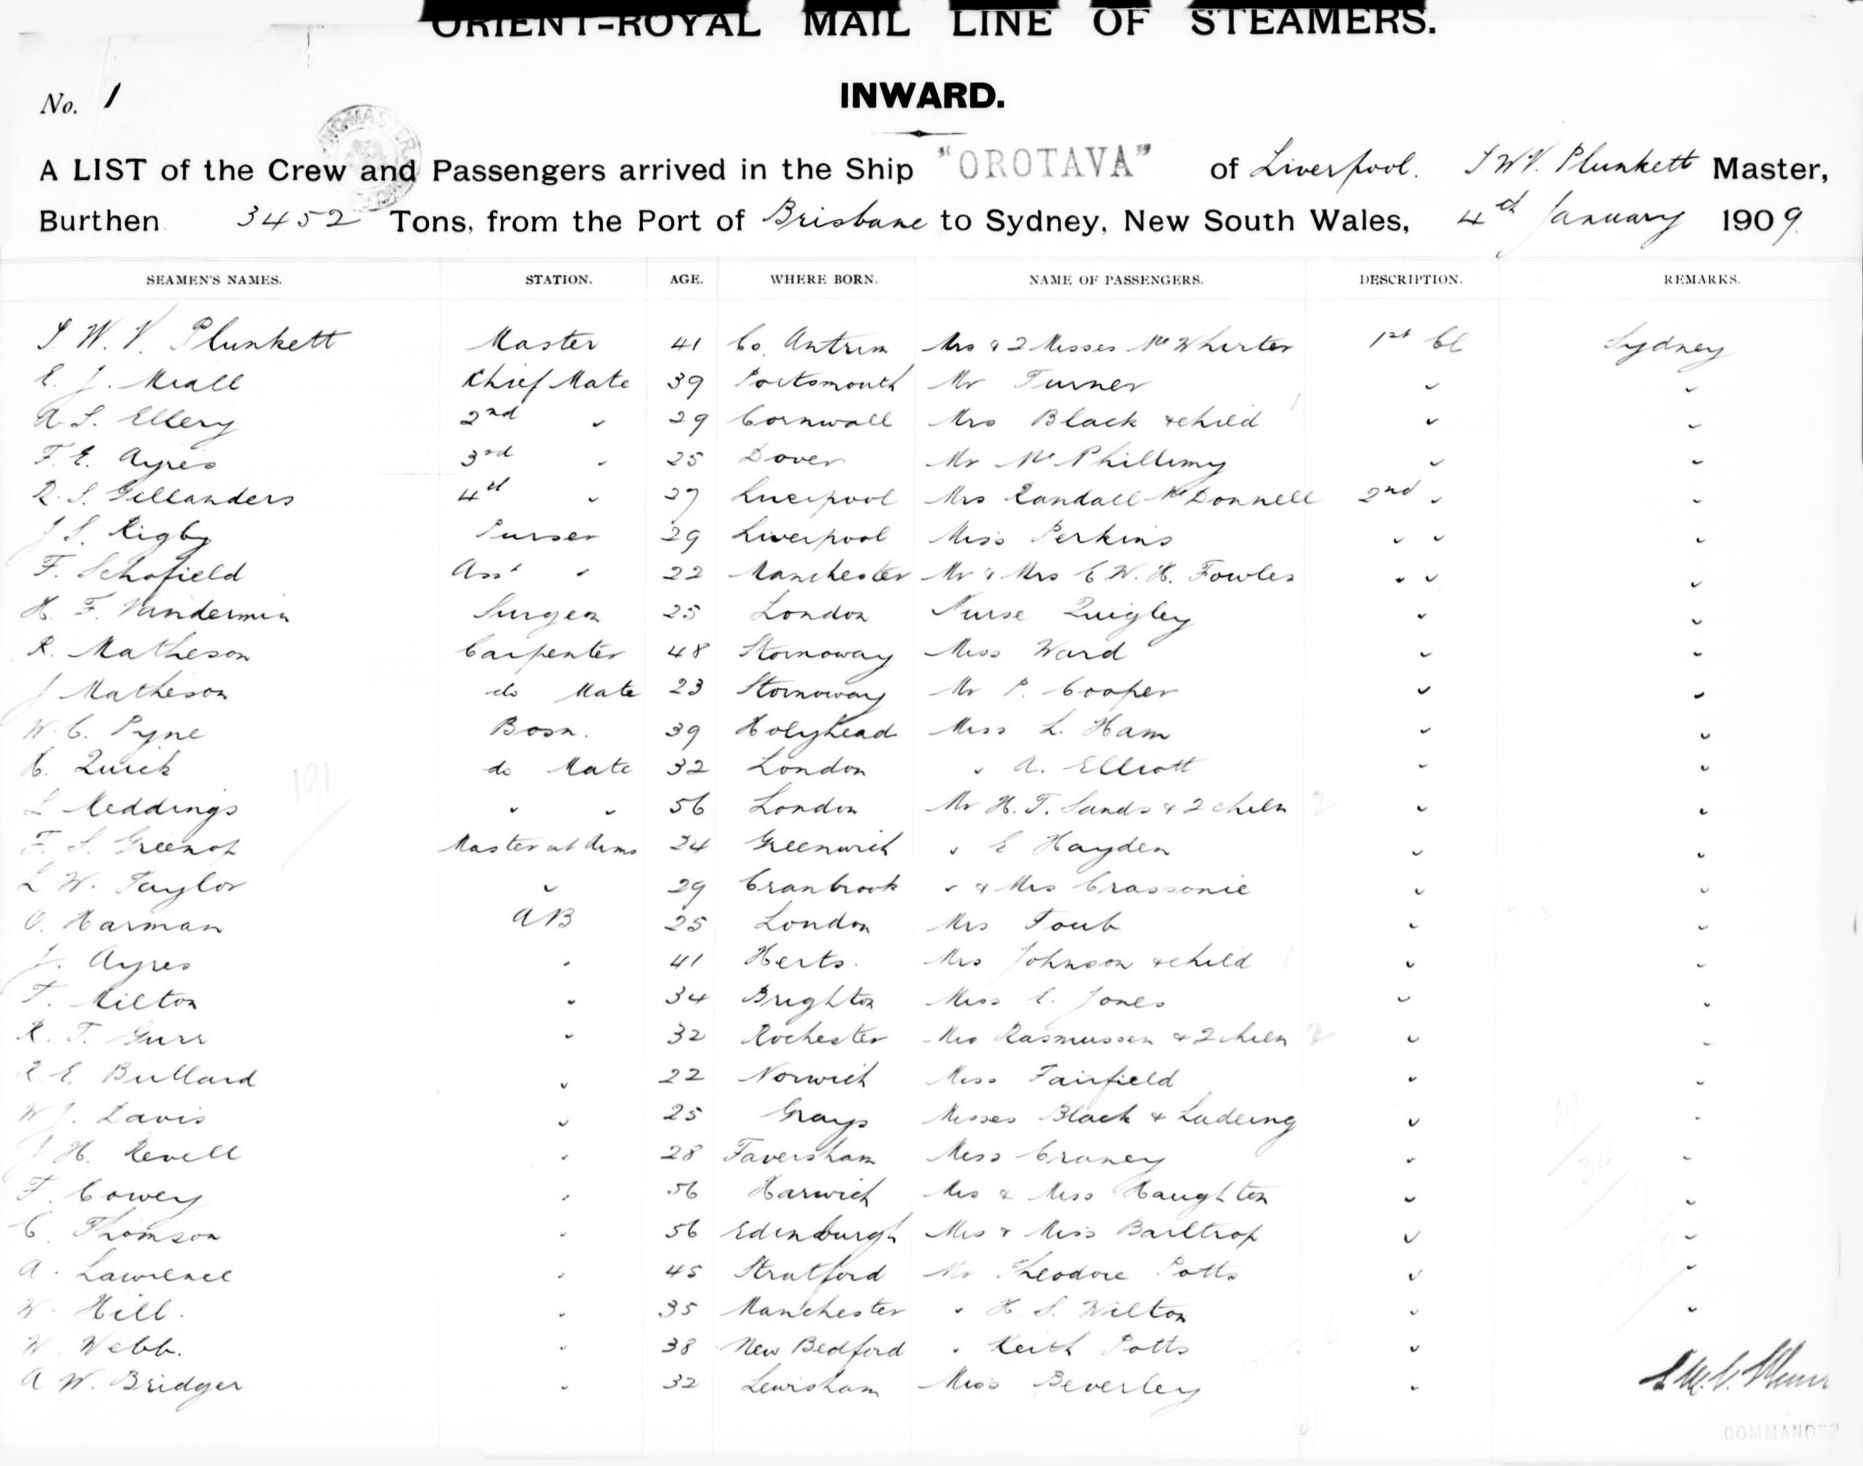 ORIENT-ROYAL MAIL LINE OF STEAMERS.
No. 1
INWARD.
A LIST of the Crew and Passengers arrived in the Ship "OROTAVA" of Liverpool. S W V. Plunkett Master,
Burthen 3452 Tons, from the Port of Brisbane to Sydney, New South Wales, 4th January 1909.
SEAMEN'S NAMES. STATION. AGE. WHERE BORN. NAME OF PASSENGERS. DESCRIPTION. REMARKS.
S. W. V. Plunkett Master 41 Co. Antrim Mrs & 2 Misses McWhirter 1st Cl Sydney
E. J. Miall Chief Mate 39 Portsmouth Mr Turner " "
A S. Ellery 2nd " 29 Cornwall Mrs Black & child " "
F. E. Ayres 3rd " 25 Dover Mr McPhillimy " "
R. S. Gillanders 4th " 27 Liverpool Mrs Randall McDonnell 2nd " "
J S. Rigby Purser 29 Liverpool Miss Perkins " " "
F. Schofield Asst " 22 Manchester Mr & Mrs E W. H. Fowles " " "
H. F. Vandermin Surgeon 25 London Nurse Quigley " "
R. Matheson Carpenter 48 Stornoway Miss Ward " "
J Matheson do Mate 23 Stornoway Mr P. Cooper " "
W. C. Pyne Bosn. 39 Holyhead Miss L. Ham " "
H. Quick do Mate 32 London " A. Elliott " "
L Meddings " " 56 London Mr H. T. Sands & 2 chiln 2 " "
F. S. Greenop Master at Arms 24 Greenwich " E Hayden " "
L W. Taylor " 29 Cranbrook " & Mrs Crassonie " "
O. Harman AB 25 London Mrs Toub " "
J. Ayres " 41 Herts. Mrs Johnson & child " "
T. Milton " 34 Brighton Miss E. Jones " "
R. T. Gurr " 32 Rochester Mrs Rasmussen & 2 chiln 2 " "
R. E. Bullard " 22 Norwich Miss Fairfield " "
W J. Davis " 25 Grays Misses Black & Ludeing " "
J H. Revell " 28 Faversham Miss Craney " "
F. Cowey " 56 Harwich Mrs & Miss Haughton " "
C. Thomson " 56 Edinburgh Mrs & Miss Bailtrop " "
A. Lawrence " 45 Stratford Mr Theodore Potts " "
W. Hill. " 35 Manchester " H S. Wilton " "
W. Webb. " 38 New Bedford " Keith Potts "
A W. Bridger " 32 Lewisham Miss Beverley "
COMMANDER